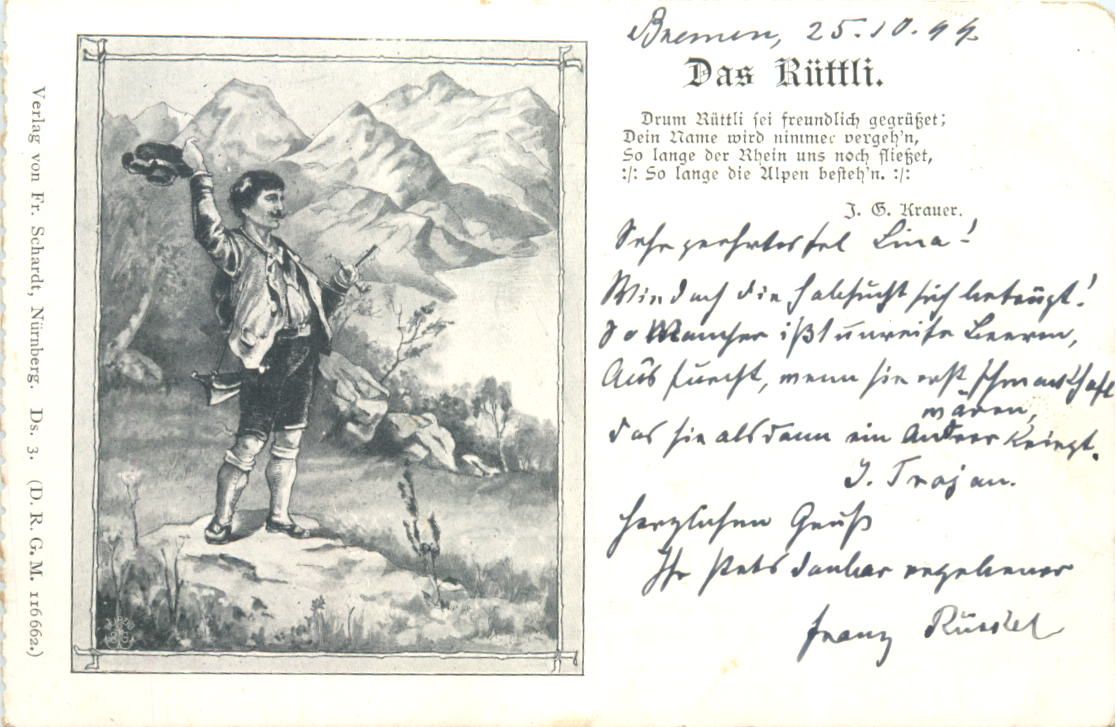 Bremen, 25.10.99.
Das Rüttli.
Drum Rüttli sei freundlich gegrüßet;
Dein Name wird nimmer vergeh'n,
So lange der Rhein uns noch fließet,
:/: So lange die Alpen besteh'n. :/:
J. G. Krauer.
Sehr geehrtes Frl Lina!
Wie doch die Habsucht sich betrügt!
So Mancher ißt unreife Beeren,
Aus Furcht, wenn sie erst schmackhaft
wären,
das sie alsdann ein Andrer kriegt.
J. Trojan.
Herzlichen Gruß
Ihr stets dankbar ergebener
Franz
Verlag von Fr. Schardt, Nürnberg. Ds. 3. (D. R. G. M. 116662.)